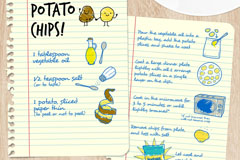 POTATO
CHIPS!
1 tablespoon
vegetable oil
1/2 teaspoon salt
(or to taste)
1 potato sliced
paper thin
(to peel or not to peel)
Pour the vegetable oil into a
plastic bag, add the potato
slices and shake to coat
Coat a large dinner plate
lightly with oil & arrange
potato slices in a single
layer on the dish.
Cook in the microwave for
3 to 5 minutes or until
lightly browned
Remove chips from plate
and toss with salt
Let cool.